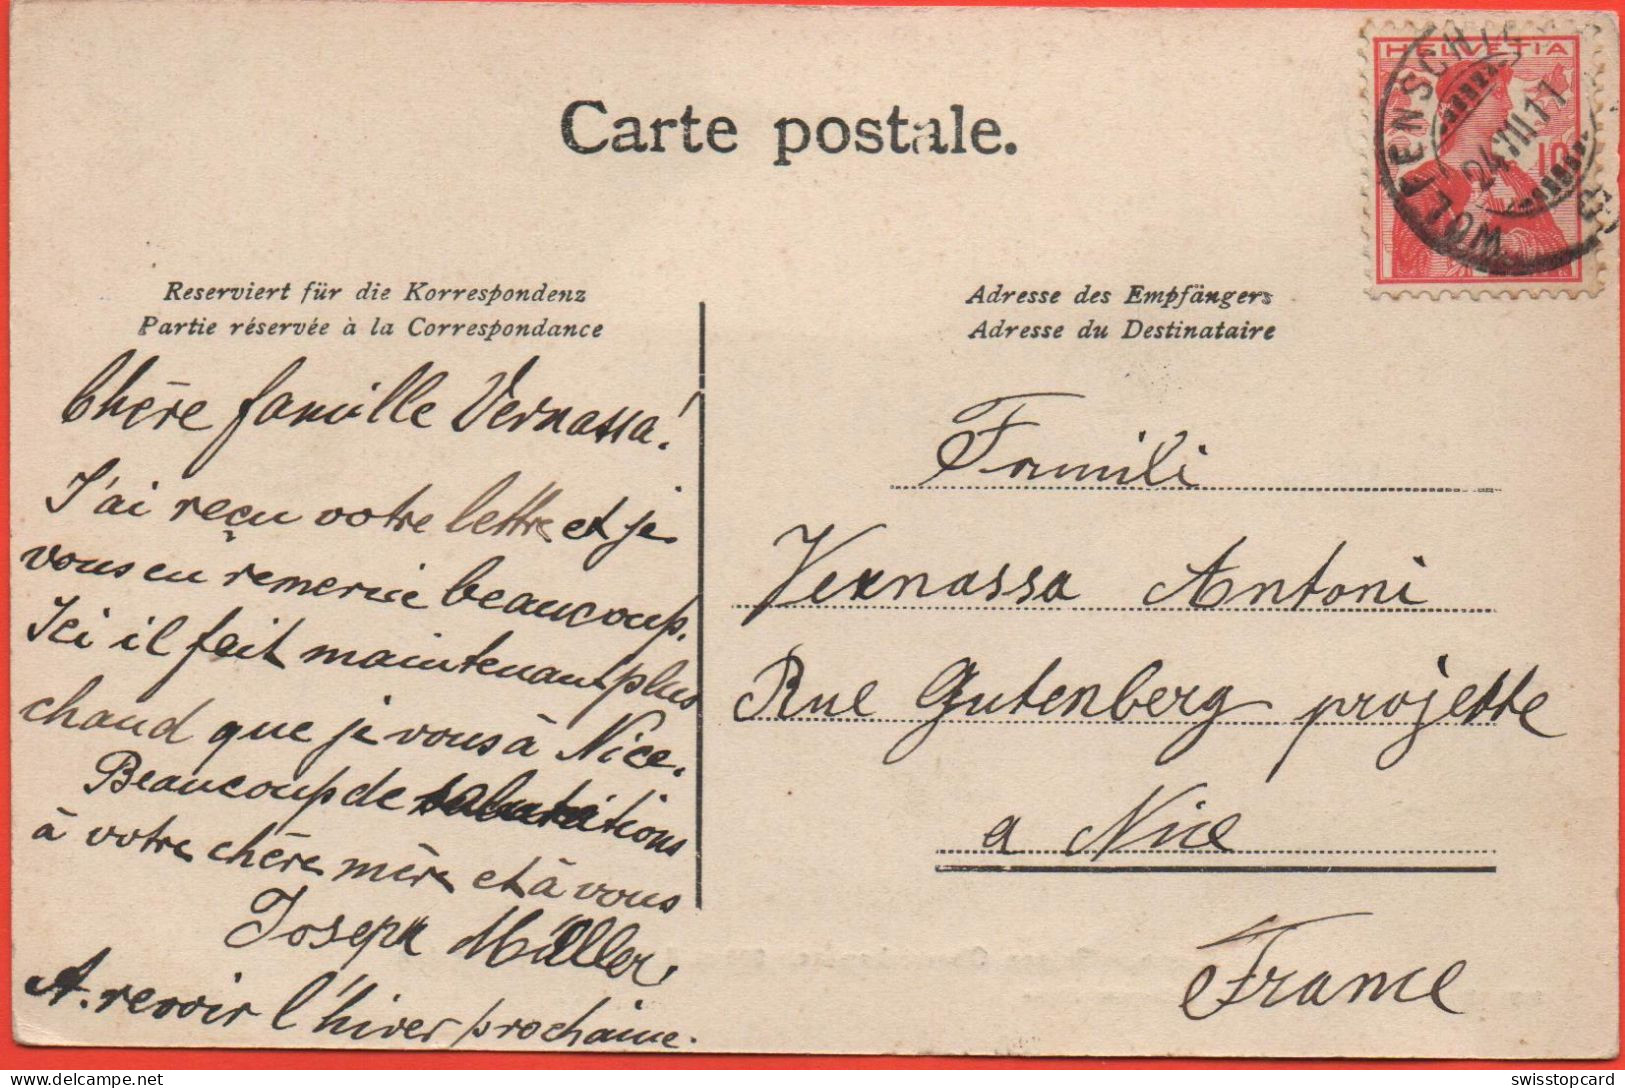 Carte postale.
HELVETIA
10
WOLFENSCHIESSEN
24.VII.11
Reserviert für die Korrespondenz
Partie réservée à la Correspondance
Adresse des Empfängers
Adresse du Destinataire
Chère famille Vernassa!
J'ai reçu votre lettre et je
vous en remercie beaucoup.
Ici il fait maintenant plus
chaud que je vous à Nice.
Beaucoup de salutations
à votre chère mère et à vous
Joseph Müller,
A. revoir l'hiver prochaine.
Famili
Vernassa Antoni
Rue Gutenberg projette
a Nice
France
swisstopcard